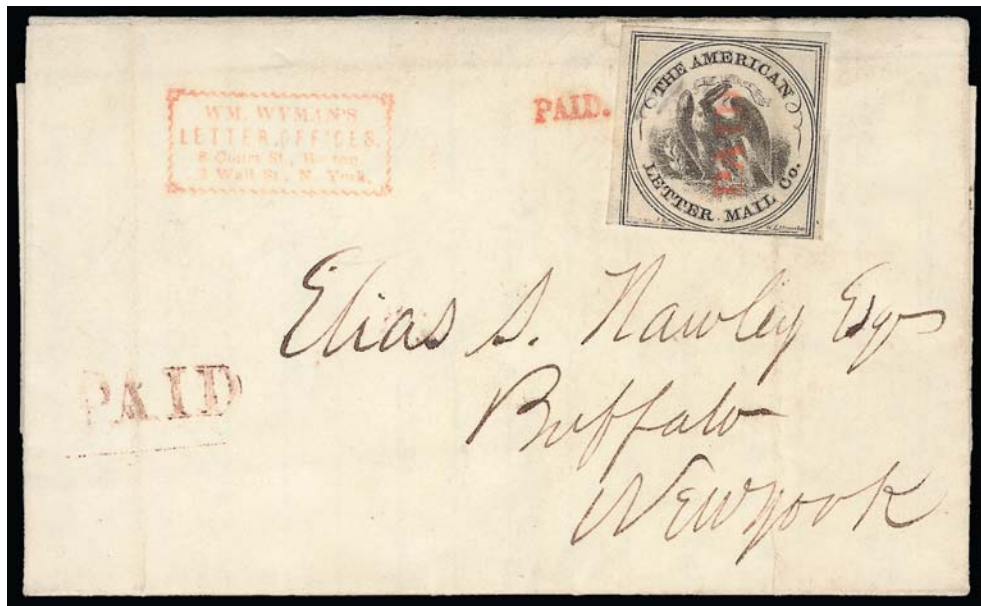 WM. WYMAN'S
LETTER OFFICES.
8 Court St., Boston,
3 Wall St., N. York.
PAID.
THE AMERICAN
LETTER MAIL Co.
PAID
Elias S. Hawley Esqr
Buffalo
New york
PAID